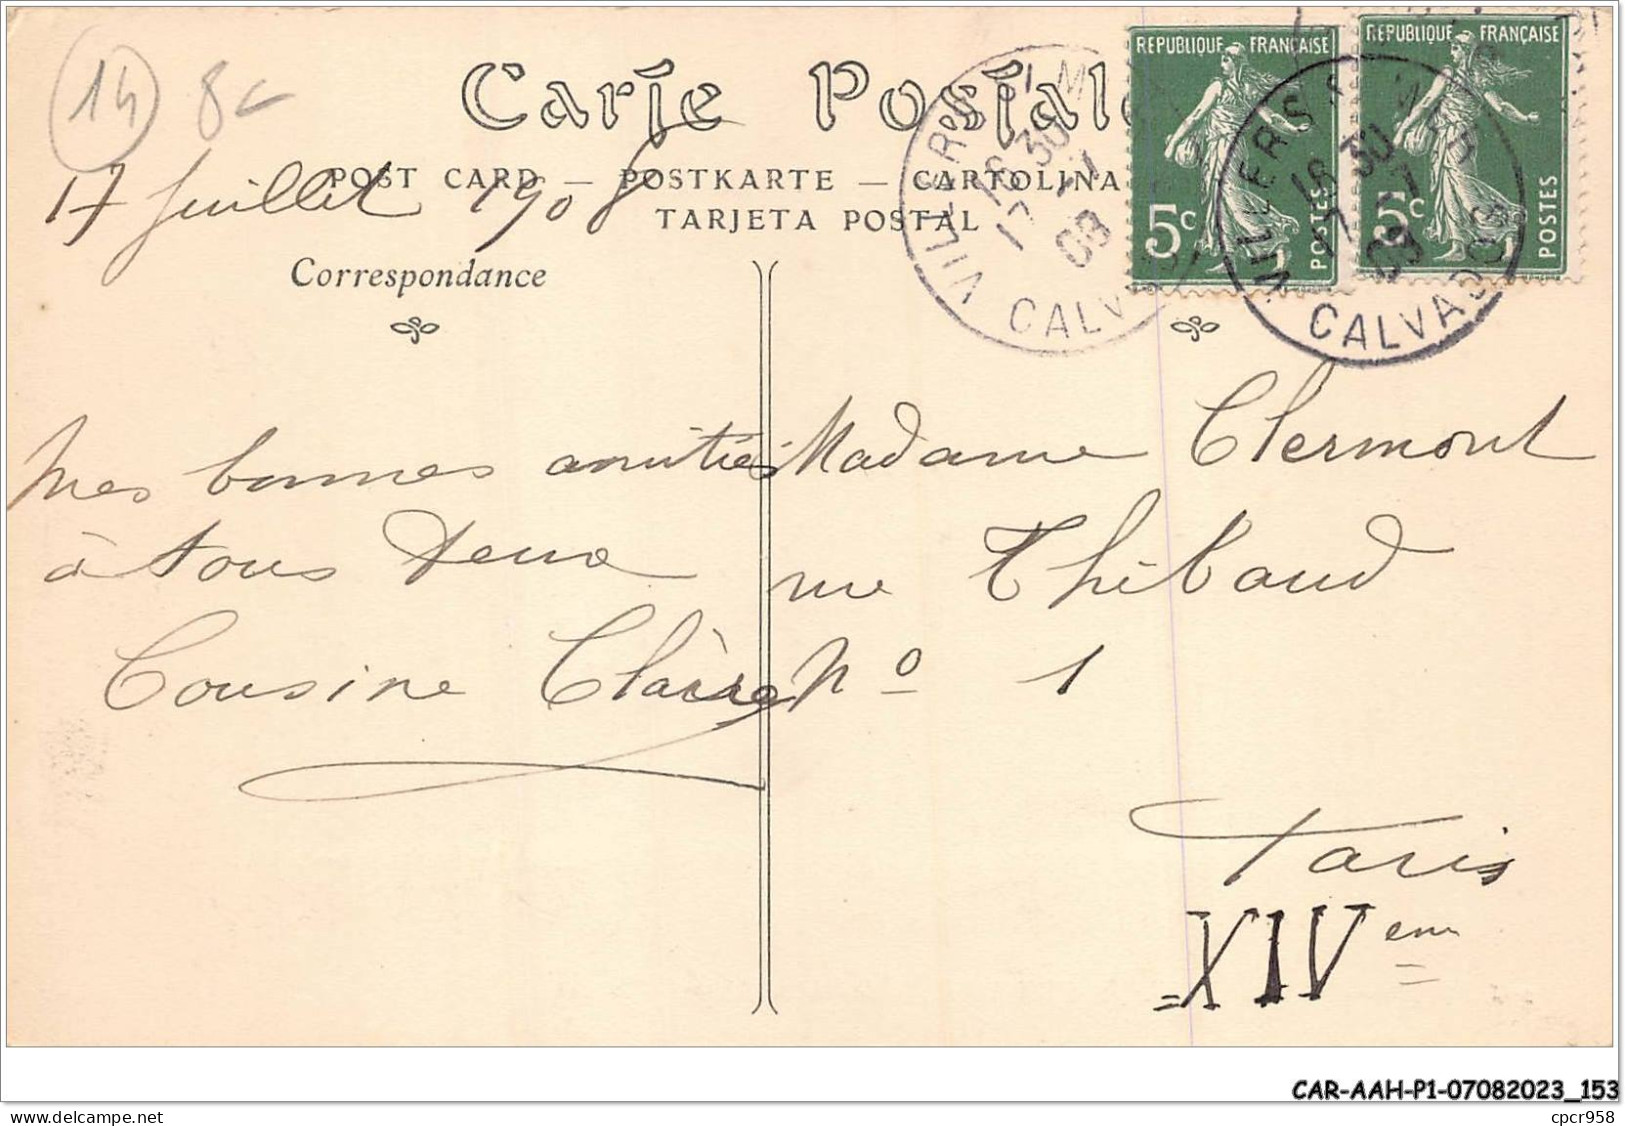 14
8c
Carte Postale
17 Juillet 1908
POST CARD — POSTKARTE — CARTOLINA
TARJETA POSTAL
Correspondance
REPUBLIQUE FRANÇAISE
5c
POSTES
REPUBLIQUE FRANÇAISE
5c
POSTES
VILLERS S. MER
16 30
17 - 7
08
CALVADOS
VILLERS S. MER
16 30
17 - 7
08
CALVADOS
Mes bonnes amitiés
à tous deux
Cousine Claire
Madame Clermont
rue Thibaud
No 1
Paris
XIVeme
CAR-AAH-P1-07082023_153
delcampe.net
cpcr958